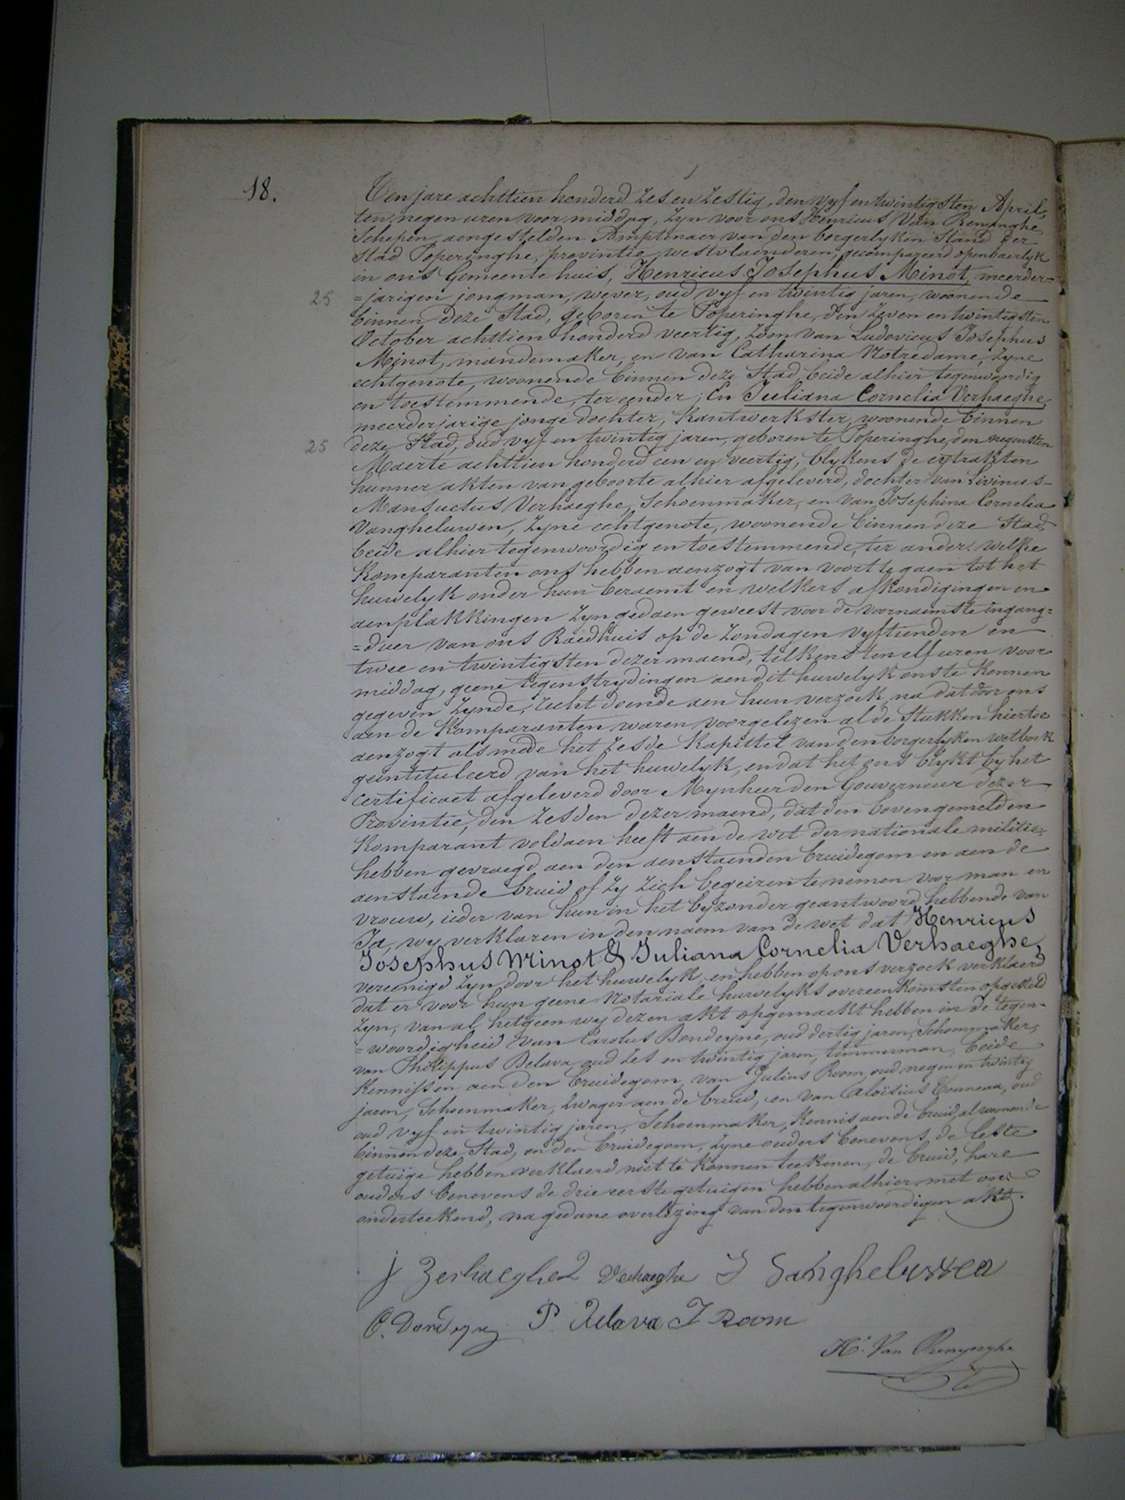 18.
Ten jare achttien honderd zes en zestig, den vyf en twintigsten April,
ten negen uren voormiddag, zyn voor ons Henricus Van Renynghe
Schepen, aengestelden Amptenaer van den borgerlyken Stand der
Stad Poperinghe, provintie westvlaenderen, gecompareerd openbaerlyk
in ons Gemeentehuis, Henricus Josephus Minot, meerder-
25
=jarigen jongman, wever, oud vyf en twintig jaren, woonende
binnen deze Stad, geboren te Poperinghe, den zeven en twintigsten
October achttien honderd veertig, zoon van Ludovicus Josephus
Minot, mandemaker, en van Catharina Notredame, zyne
echtgenote, woonende binnen deze Stad, beide alhier tegenwoordig
en toestemmende, ter eender; En Juliana Cornelia Verhaeghe,
meerderjarige jonge dochter, kantwerkster, woonende binnen
25
deze Stad, oud vyf en twintig jaren, geboren te Poperinghe, den negensten
Maerte achttien honderd een en veertig, blykens de extrakten
hunner akten van geboorte alhier afgeleverd, dochter van Livinus
Mansuetus Verhaeghe, Schoenmaker, en van Josephina Cornelia
Vangheluwen, zyne echtgenote, woonende binnen deze Stad
beide alhier tegenwoordig en toestemmende, ter ander: welke
Komparanten ons hebben aenzogt van voort te gaen tot het
huwelyk onder hun beraemt en welkers afkondigingen en
aenplakkingen zyn gedaen geweest voor de voornaemste ingang=
=duer van ons Raedhuis op de zondagen vyftienden en
twee en twintigsten dezer maend, telkens ten elf uren voor
middag, geene tegenstrydingen aen dit huwelyk ons te kennen
gegeven zynde, recht doende aen hun verzoek, na dat door ons
aen de Komparanten waren voorgelezen al de stukken hiertoe
aenzogt als mede het zesde Kapittel van den borgerlyken wetboek
geintituleerd van het huwelyk, en dat het ons blykt by het
certificaet afgeleverd door Mynheer den Gouverneur dezer
Provintie, den zesden dezer maend, dat den bovengemelden
Komparant voldaen heeft aen de wet der nationale militie;
hebben gevraegd aen den aenstaenden bruidegom en aen de
aenstaende bruid of zy zich begeiren te nemen voor man en
vrouw, ieder van hun in het byzonder geantwoord hebbende van
Ja, wy verklaren in den naem van de wet dat Henricus
Josephus Minot & Juliana Cornelia Verhaeghe,
vereenigd zyn door het huwelyk en hebben op ons verzoek verklaerd
dat er voor hun geene Notariale huwelyks overeenkomsten opgesteld
zyn; van al hetgeen wy dezen akt opgemaekt hebben in de tegen-
=woordigheid van Carolus Dondeyne, oud dertig jaren, Schoenmaker,
van Philippus Delava, oud zes en twintig jaren, timmerman, beide
kennissen aen den bruidegom, van Julius Room, oud negen en twintig
jaren, Schoenmaker, zwager aen de bruid, en van Aloisius, oud
oud vyf en twintig jaren, Schoenmaker, kennis aen de bruid, al woonende
binnen deze Stad, en den bruidegom, zyne ouders benevens de leste
getuige hebben verklaerd niet te konnen teekenen, de bruid, hare
ouders benevens de drie eerste getuigen hebben alhier met ons
onderteekend, na gedane overlezing van den tegenwoordigen akt.
J Verhaeghe L Verhaeghe J Vangheluwen
C. Dondeyne P. Delava J Room
Hs. Van Renynghe